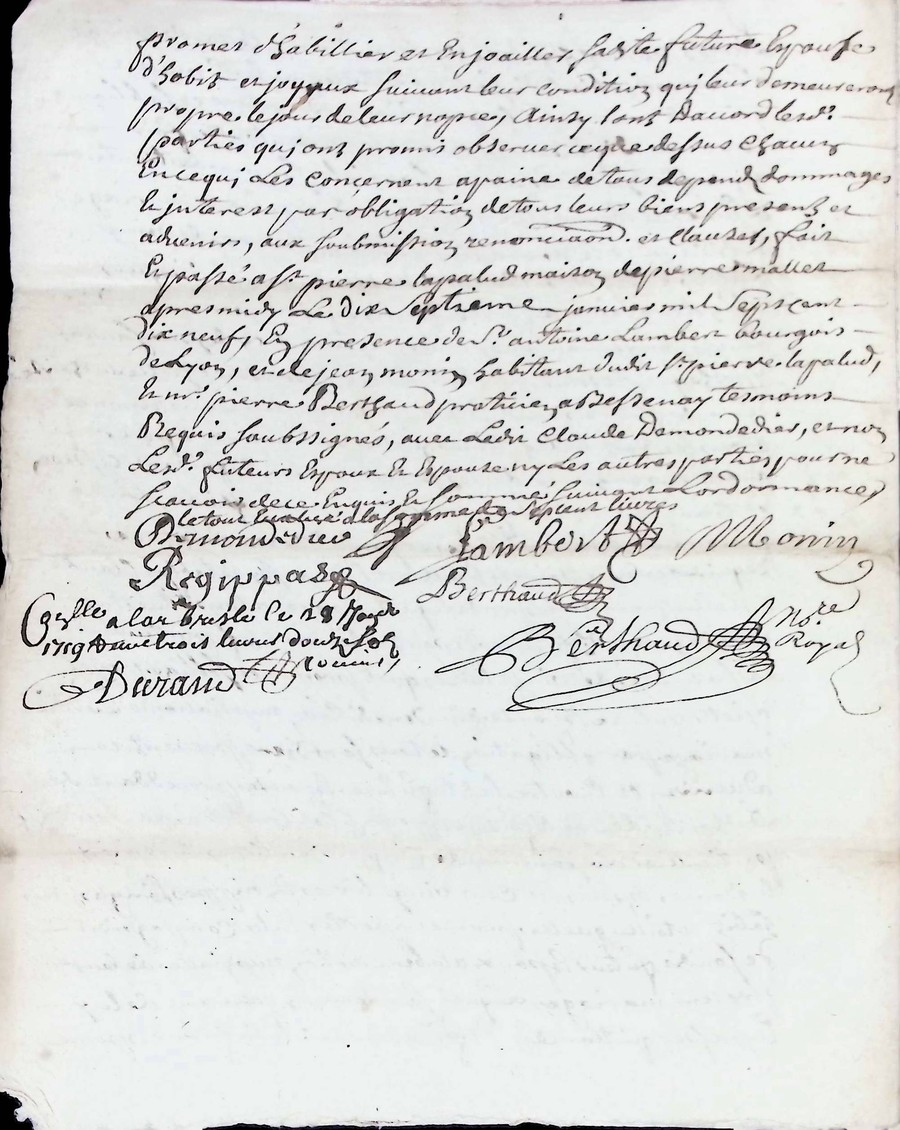 promet d'habillier et Enjoailler sadte future Epouse
d'habit et joyaux suivant leur condition qui leur demeureront
propre le jour de leur nopce, Ainsy sont Daccord lesd.
parties qui ont promis observer ce que dessus Chacun
En ce qui Les Concernent a paine de tous depend dommages
Et jnterest par obligation de tous leurs biens present et
advenirs, aux soubmission renonciaon. et Clauses, fait
Et passé a st. pierre lapalud maison de pierre mallet
apres midy Le dix septieme janvier mil sept cent
dix neuf, En presence de Sr. antoine Lambert bourgois
de Lyon, et de jean monin habitant dudit st. pierre lapalud,
Et mr. pierre Berthaud praticien a Bessenay tesmoins
Requis soubssignés, avec Ledit Claude Demondedier, et non
Lesd. futeurs Epoux Et Epouze ny Les autres parties pour ne
scavoir de ce Enquis Et sommé suivant Lordonnance,
le tout à la somme de sept cent livres
Demondedieu Lambert Monin
Regippas
Berthaud
Cgrlle a lar bresle le 28
1719 trois livres douze sols
Durand
Berthaud Nore.
Royal